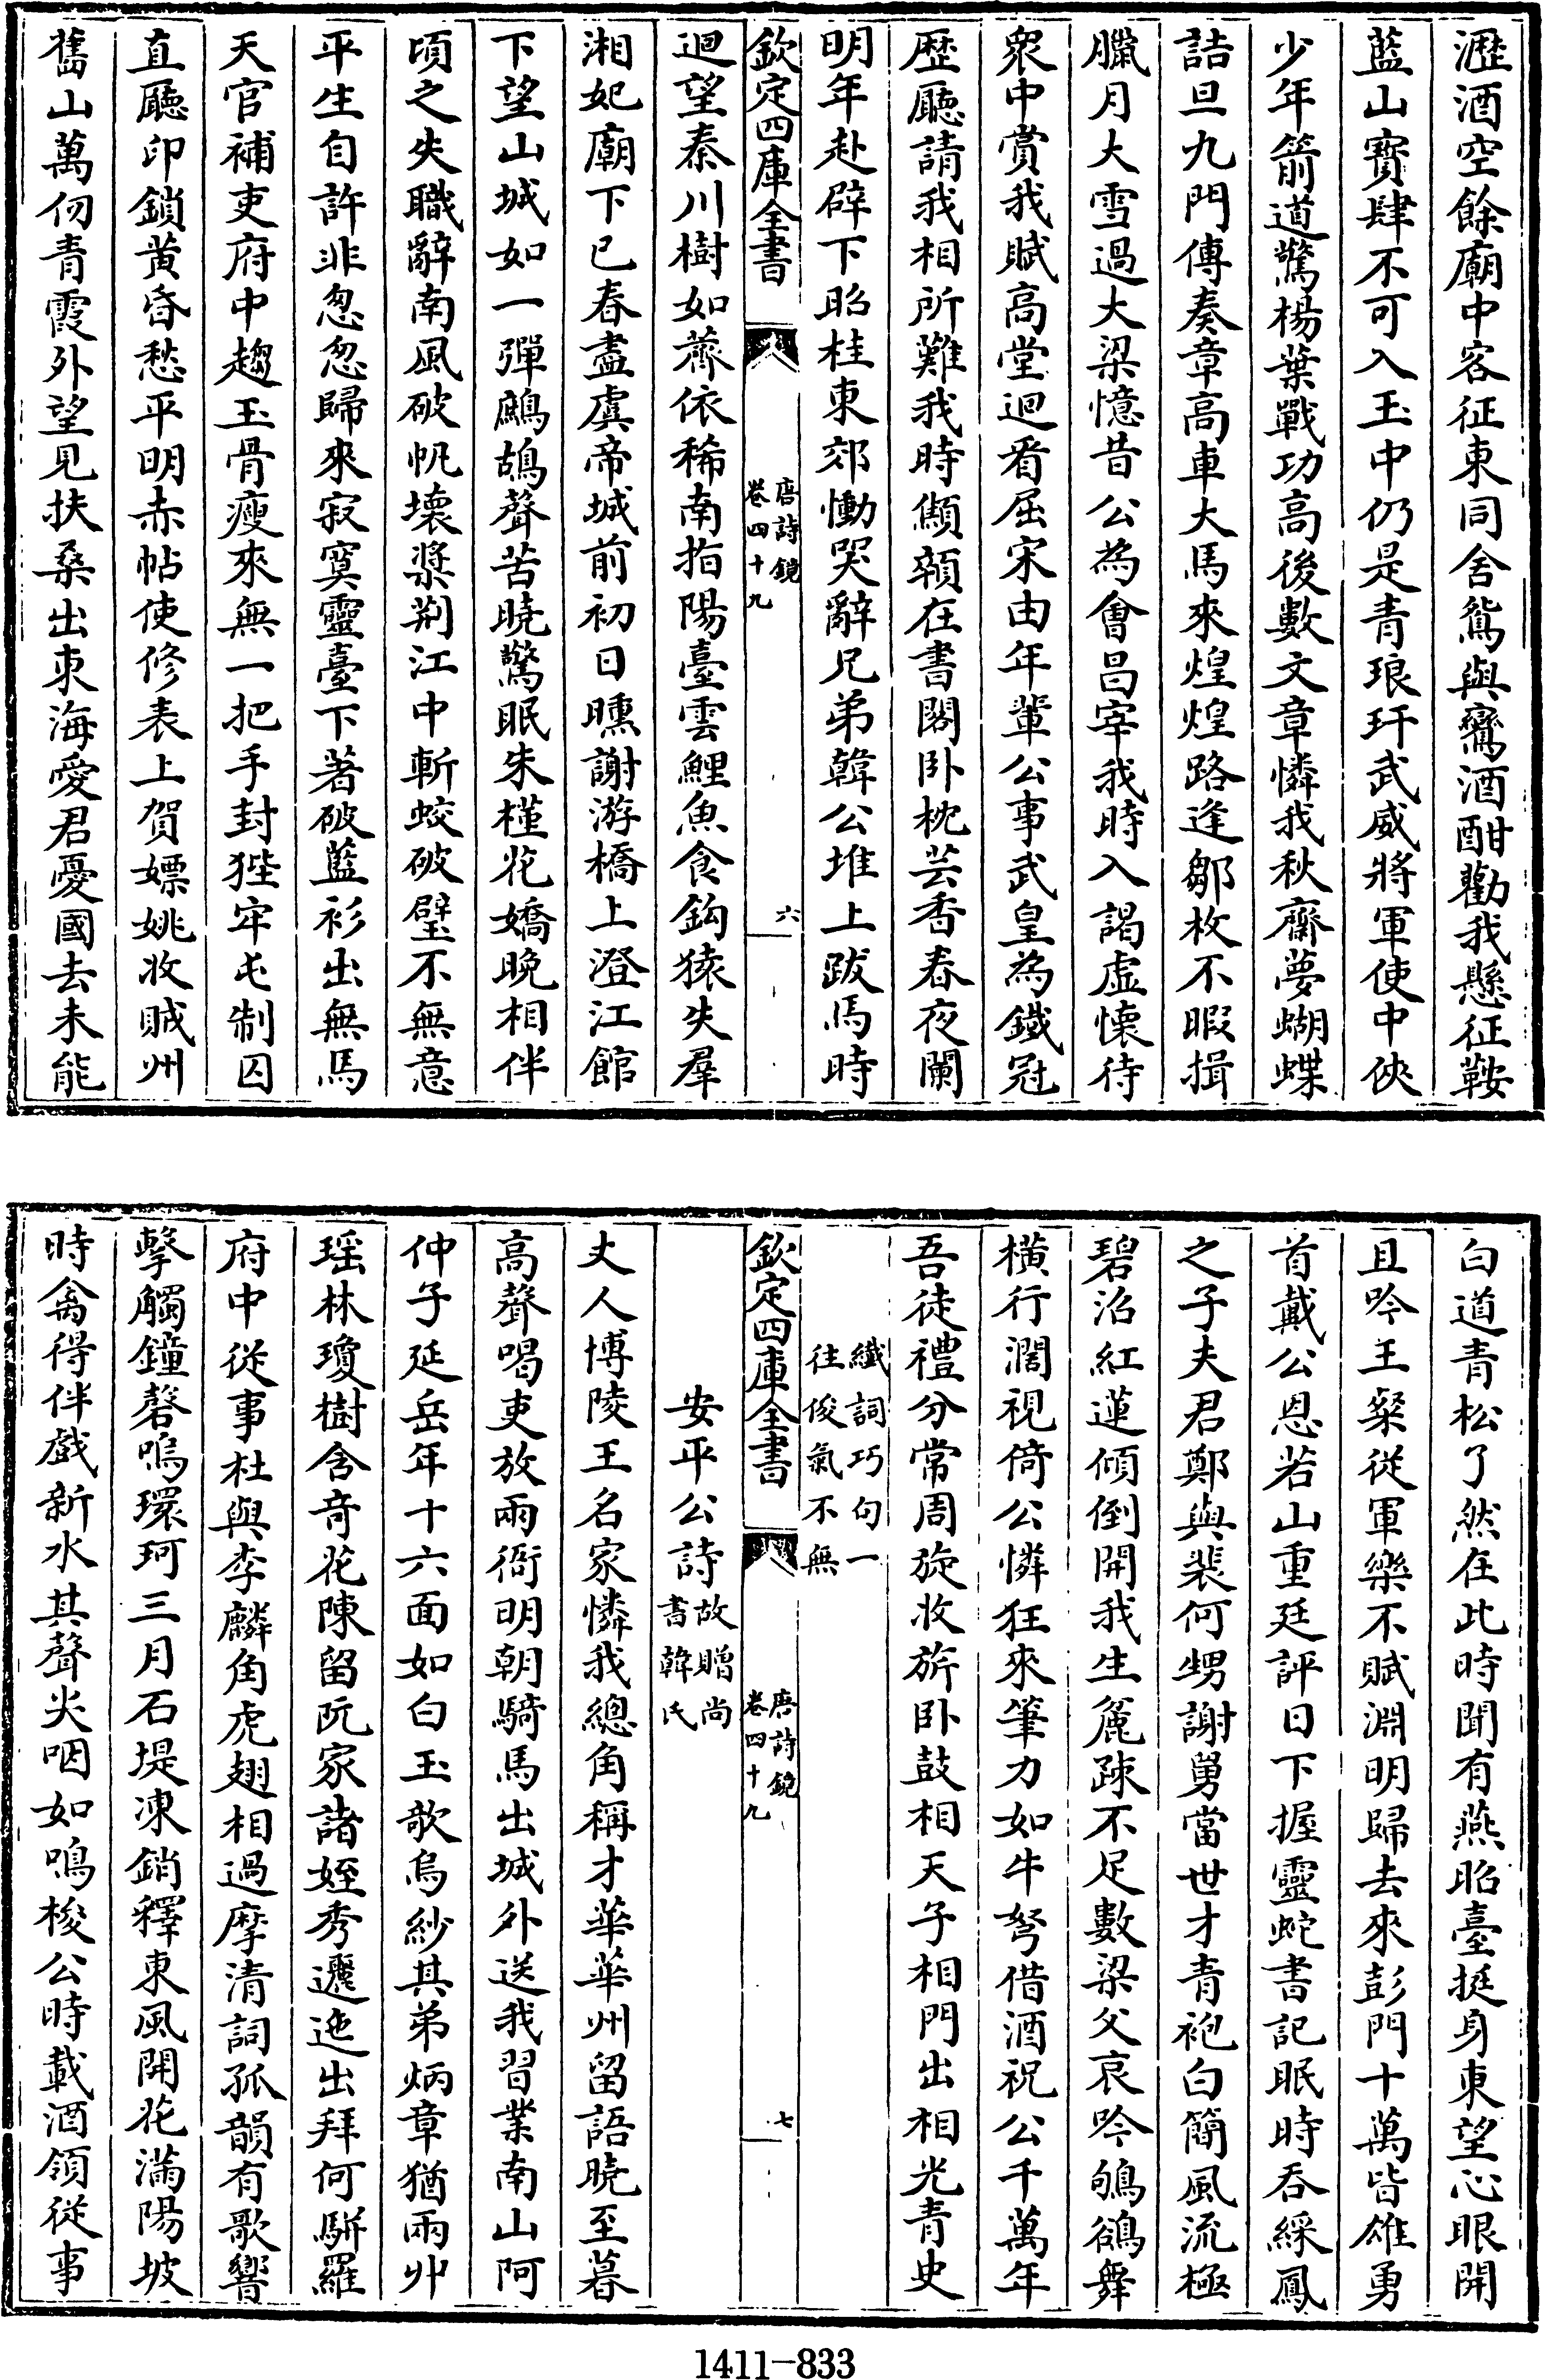 瀝酒空餘廟中客征東同舍鴛與鸞酒酣勸我懸征鞍
藍山寳肆不可入玉中仍是青琅玕武威將軍使中俠
少年箭道驚楊葉戰功高後數文章憐我秋齋夢蝴蝶
詰旦九門傳奏章高車大馬來煌煌路逢鄒枚不暇揖
臘月大雪過大梁憶昔公為會昌宰我時入謁虚懷待
衆中賞我賦高堂迴看屈宋由年輩公事武皇為鐵冠
歴廳請我相所難我時顦顇在書閣卧枕芸香春夜闌
明年赴辟下昭桂東郊慟哭辭兄弟韓公堆上跋馬時
欽定四庫全書
唐詩鏡
卷四十九
六
迴望秦川樹如薺依稀南指陽臺雲鯉魚食鈎猿失羣
湘妃廟下已春盡虞帝城前初日曛謝游橋上澄江館
下望山城如一彈鷓鴣聲苦曉驚眠朱槿花嬌晚相伴
頃之失職辭南風破帆壞槳荆江中斬蛟破璧不無意
平生自許非怱怱歸來寂寞靈臺下著破藍衫出無馬
天官補吏府中趨玉骨瘦來無一把手封狴牢屯制囚
直廳印鎖黄昏愁平明赤帖使修表上賀嫖姚收賊州
舊山萬仞青霞外望見扶桑出東海愛君憂國去未能
白道青松了然在此時聞有燕昭臺挺身東望心眼開
且吟王粲從軍樂不賦淵明歸去來彭門十萬皆雄勇
首戴公恩若山重廷評日下握靈蛇書記眠時吞綵鳳
之子夫君鄭與裴何甥謝舅當世才青袍白簡風流極
碧沼紅蓮傾倒開我生麄疎不足數梁父哀吟鴝鵒舞
横行濶視倚公憐狂來筆力如牛弩借酒祝公千萬年
吾徒禮分常周旋收旂卧鼓相天子相門出相光青史
纖詞巧句一
往俊氣不無
欽定四庫全書
唐詩鏡
卷四十九
七
安平公詩
故贈尚
書韓氏
丈人博陵王名家憐我總角稱才華華州留語曉至暮
高聲喝吏放兩衙明朝騎馬出城外送我習業南山阿
仲子延岳年十六面如白玉欹烏紗其弟炳章猶兩丱
瑶林瓊樹含竒花陳留阮家諸姪秀邐迤出拜何駢羅
府中從事杜與李麟角虎翅相過摩清詞孤韻有歌響
擊觸鐘磬鳴環珂三月石堤凍銷釋東風開花滿陽坡
時禽得伴戲新水其聲尖咽如鳴梭公時載酒領從事
1411-833